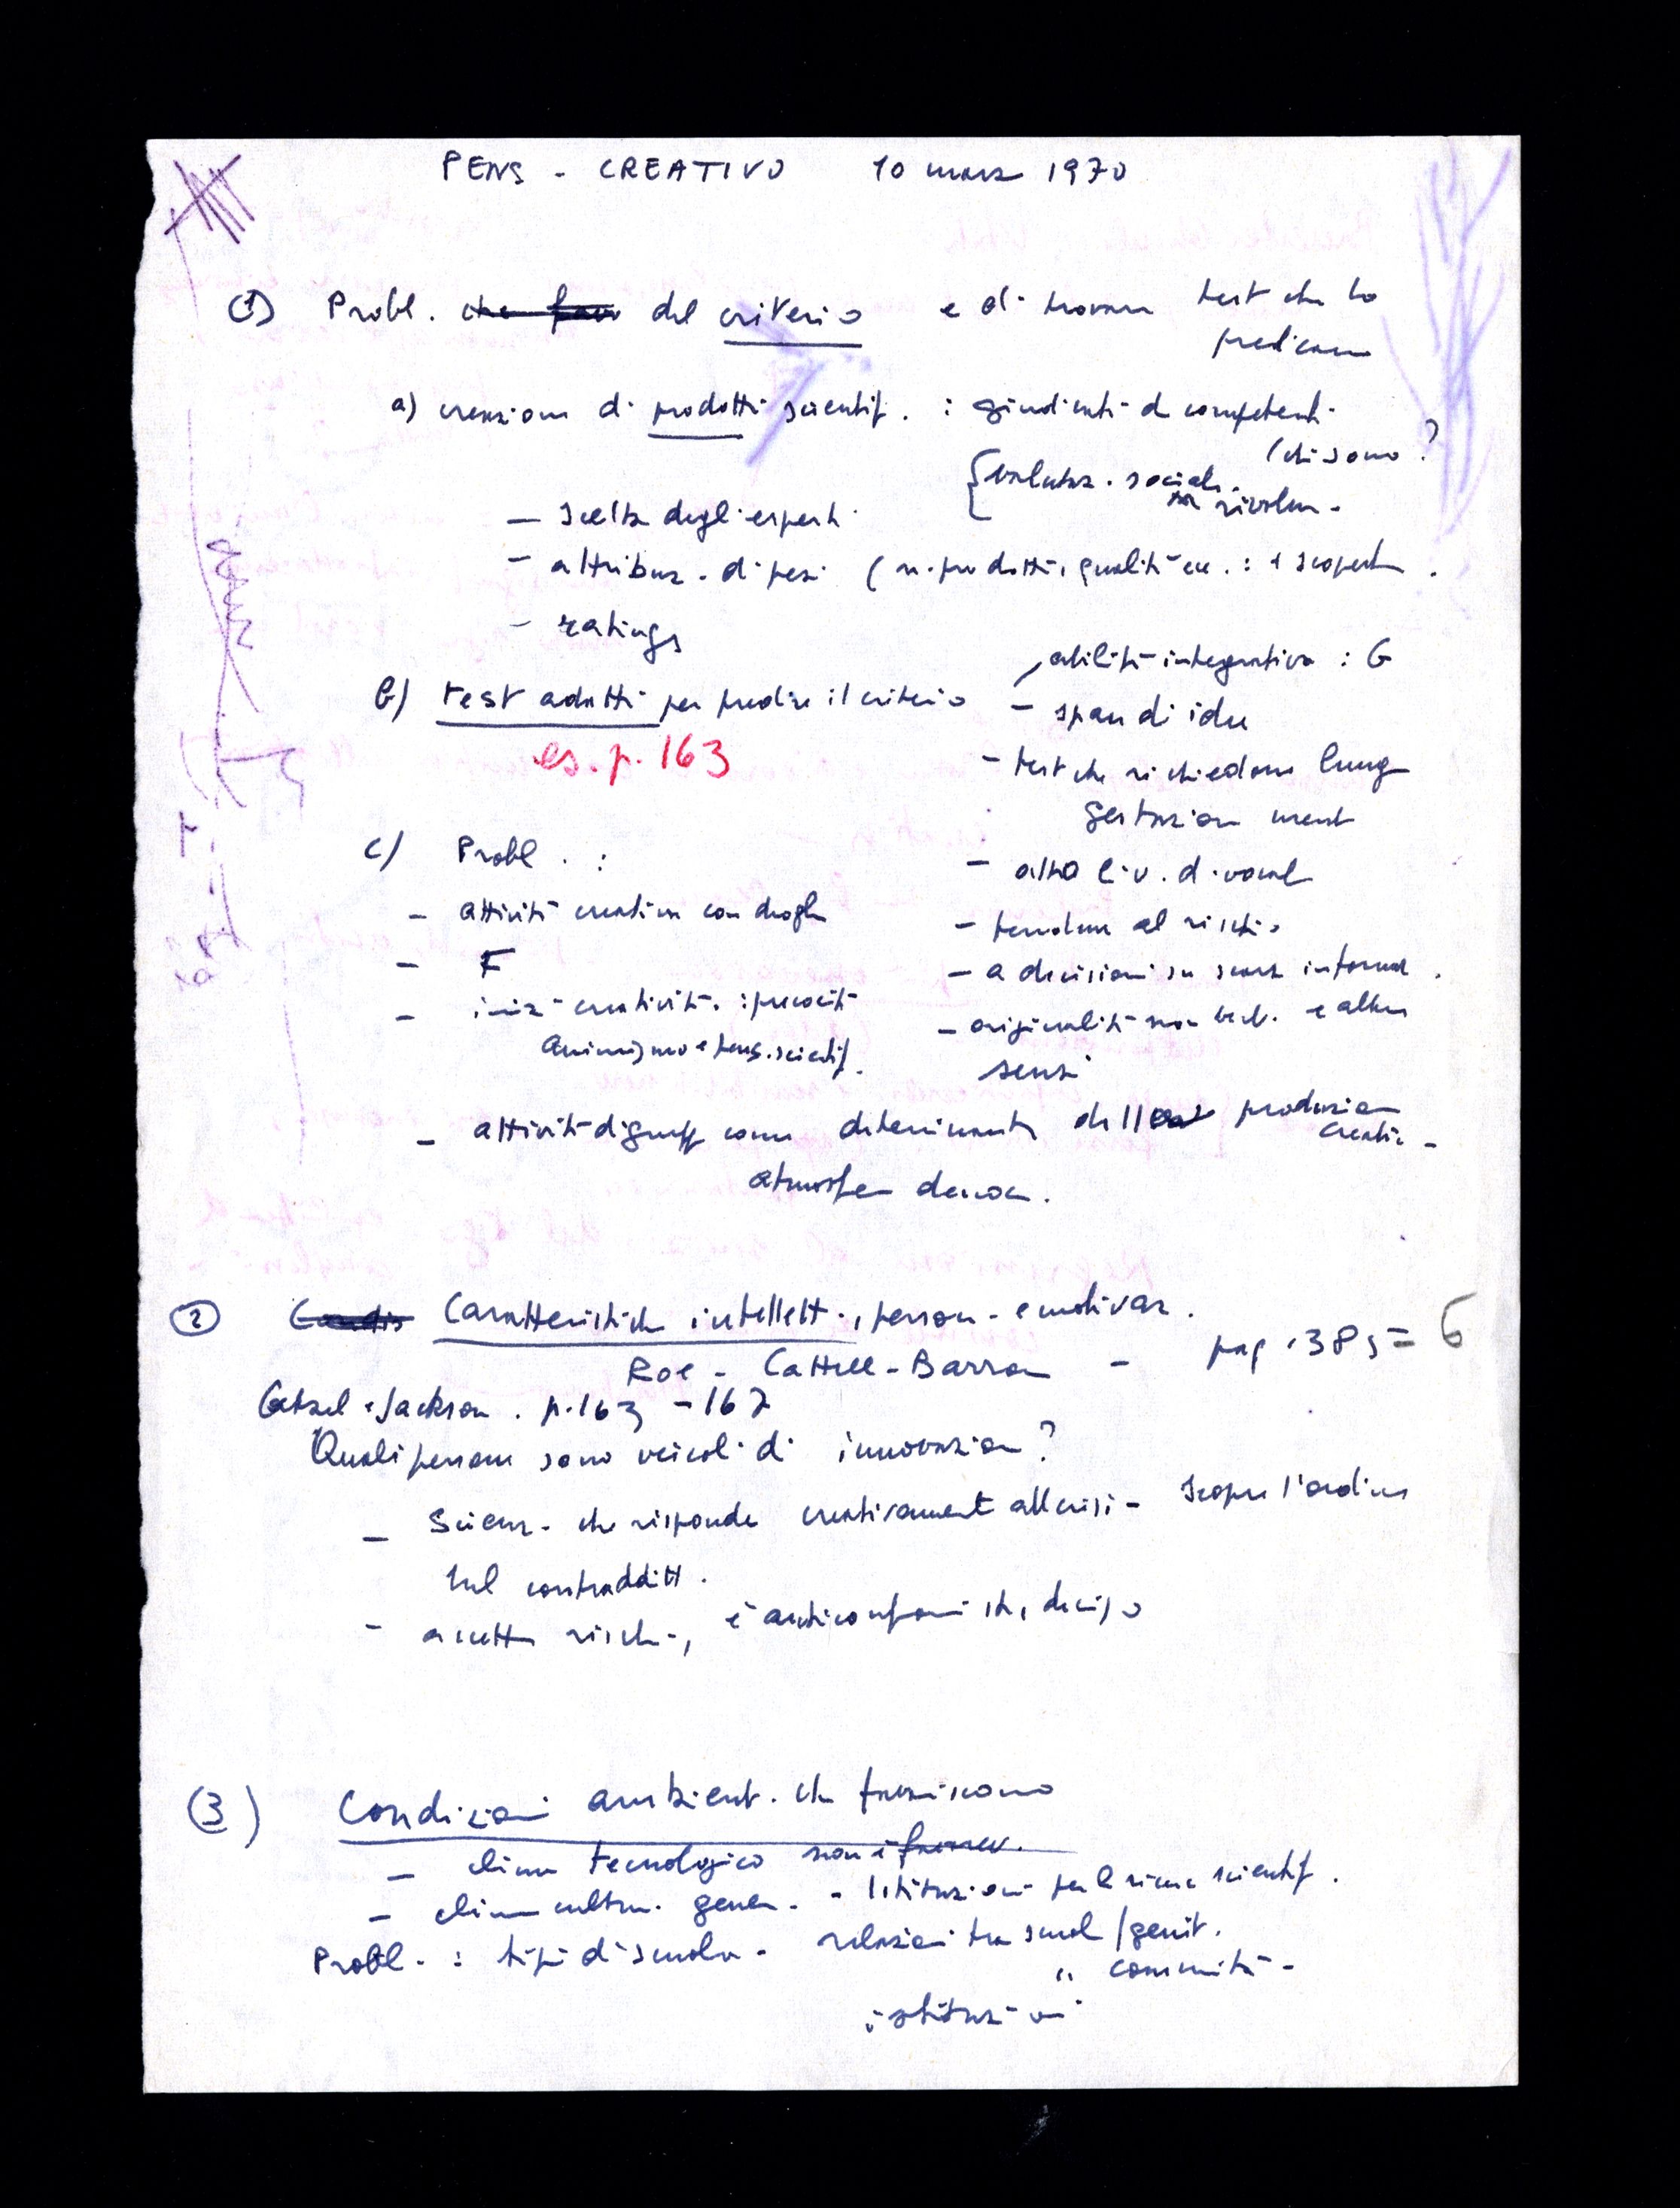 PENS - CREATIVO 10 marz 1970
(1) Probl. che fav del criterio e di trovare test che lo
predicano
a) creazione di prodotti scientif. : giudicati da competenti
(chi sono?
{ valutaz. sociale.
rivoluz.
- scelta degli esperti
- attribuz. di pesi (n. prodotti, qualità ecc. : + scoperte.
- ratings
b) test adatti per predire il criterio
es. p. 163
abilità integrativa : G
- span di idee
- test che richiedono lunga
gestazione ment
- alto liv. di vocab
- tendenza al rischio
- a decisioni su scarse informaz.
- originalità non verb. e altri
sensi
c) Probl. :
- attività creativa con droghe
- F
- iniz creatività : precocità
Animismo e pens. scientif.
- attività di gruppo come determinante della produzione
creativ-
atmosfera democr.
(2) Condiz Caratteristiche intellett., person- e motivaz.
Roe - Cattell - Barron - pag. 385 = 6
Getzel e Jackson. p. 163 - 167
Quali persone sono veicoli di innovazione?
- Scienz. che risponde creativamente alla crisi - scopre l'ordine
nel contraddditt.
- accetta rischi, è anticonformista, deciso
(3) Condizioni ambient. che favoriscono
- clima tecnologico non è favorev.
- clima cultur. gener. - Istituzioni per la ricerca scientif.
Probl. : tipi di scuola - relazioni tra scuola/genit.
" comunità -
istituzioni